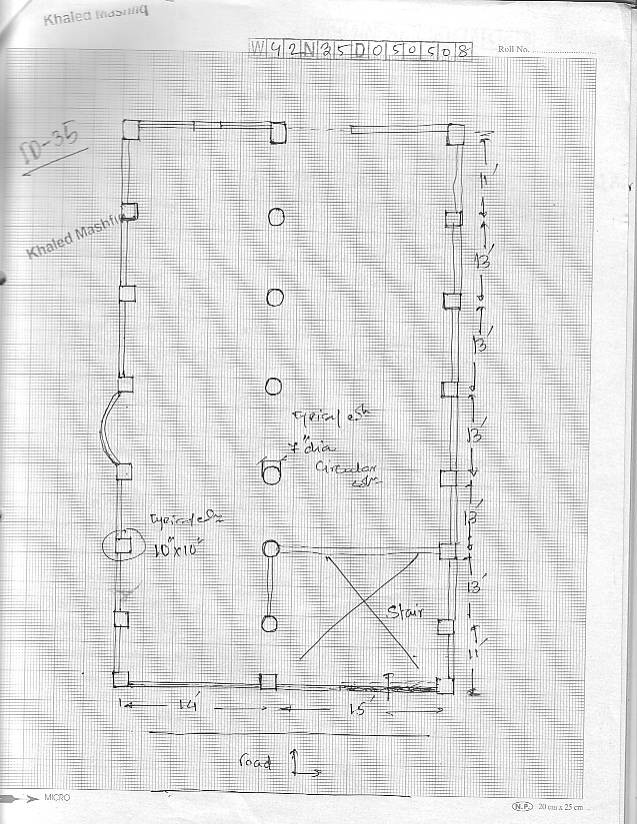 Khaled Mashfiq
W42N35D050508
Roll No.
ID-35
Khaled Mashfiq
11'
13'
13'
13'
Typical
7" dia
Circular
13'
Typical
10"x10"
13'
Stair
11'
14'
15'
road
MICRO
N.P. 20 cm x 25 cm